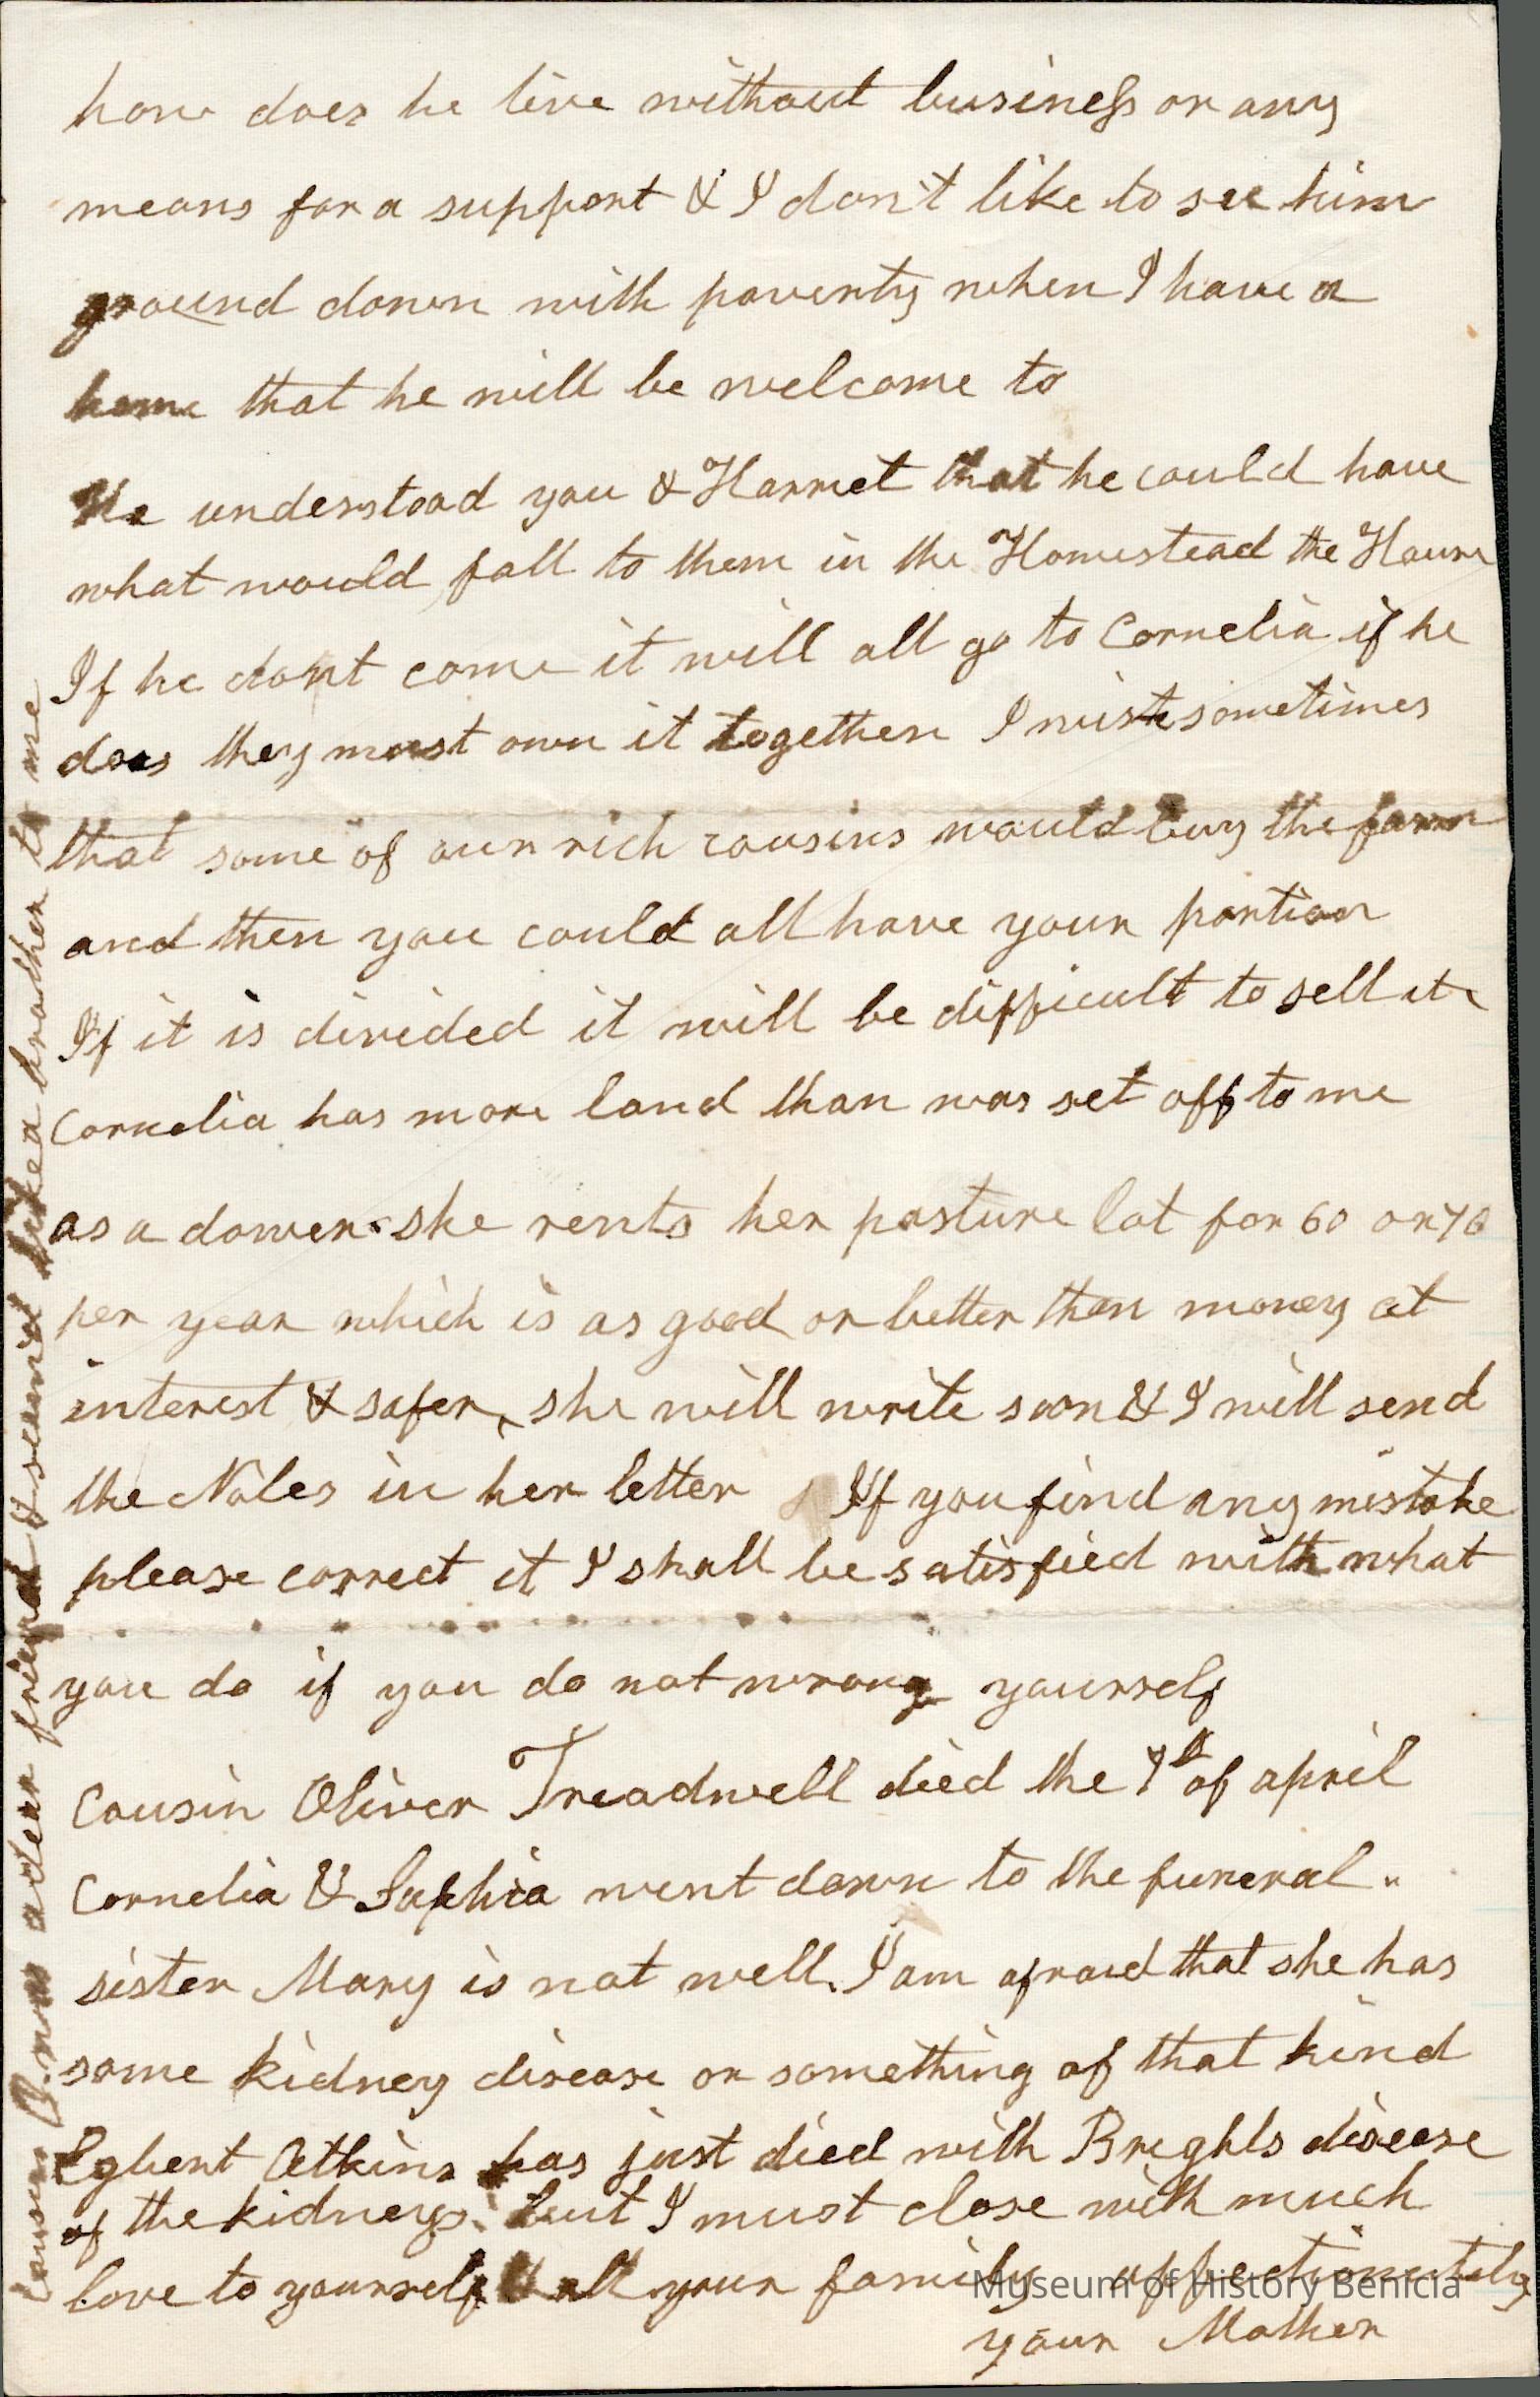 how does he live without business or any
means for a support & I don't like to see him
ground down with poverty when I have a
home that he will be welcome to
He understood you & Harriet that he could have
what would fall to them in the Homestead the House
If he dont come it will all go to Cornelia if he
does they must own it together I wish sometimes
that some of our rich cousins would buy the farm
and then you could all have your portion
If it is divided it will be difficult to sell it
Cornelia has more land than was set off to me
as a dower she rents her pasture lot for 60 or 70
per year which is as good or better than money at
interest & safer, she will write soon & I will send
the Notes in her letter If you find any mistake
please correct it I shall be satisfied with what
you do if you do not wrong yourself
Cousin Oliver Treadwell died the 7th of april
Cornelia & Sophia went down to the funeral.
sister Mary is not well. I am afraid that she has
some kidney disease or something of that kind
Egbert Atkins has just died with Breghts disease
of the kidneys. but I must close with much
love to yourself & all your family affectionately
your Mother
Cousin O. was a dear friend & seem'd like a brother to me
Museum of History Benicia